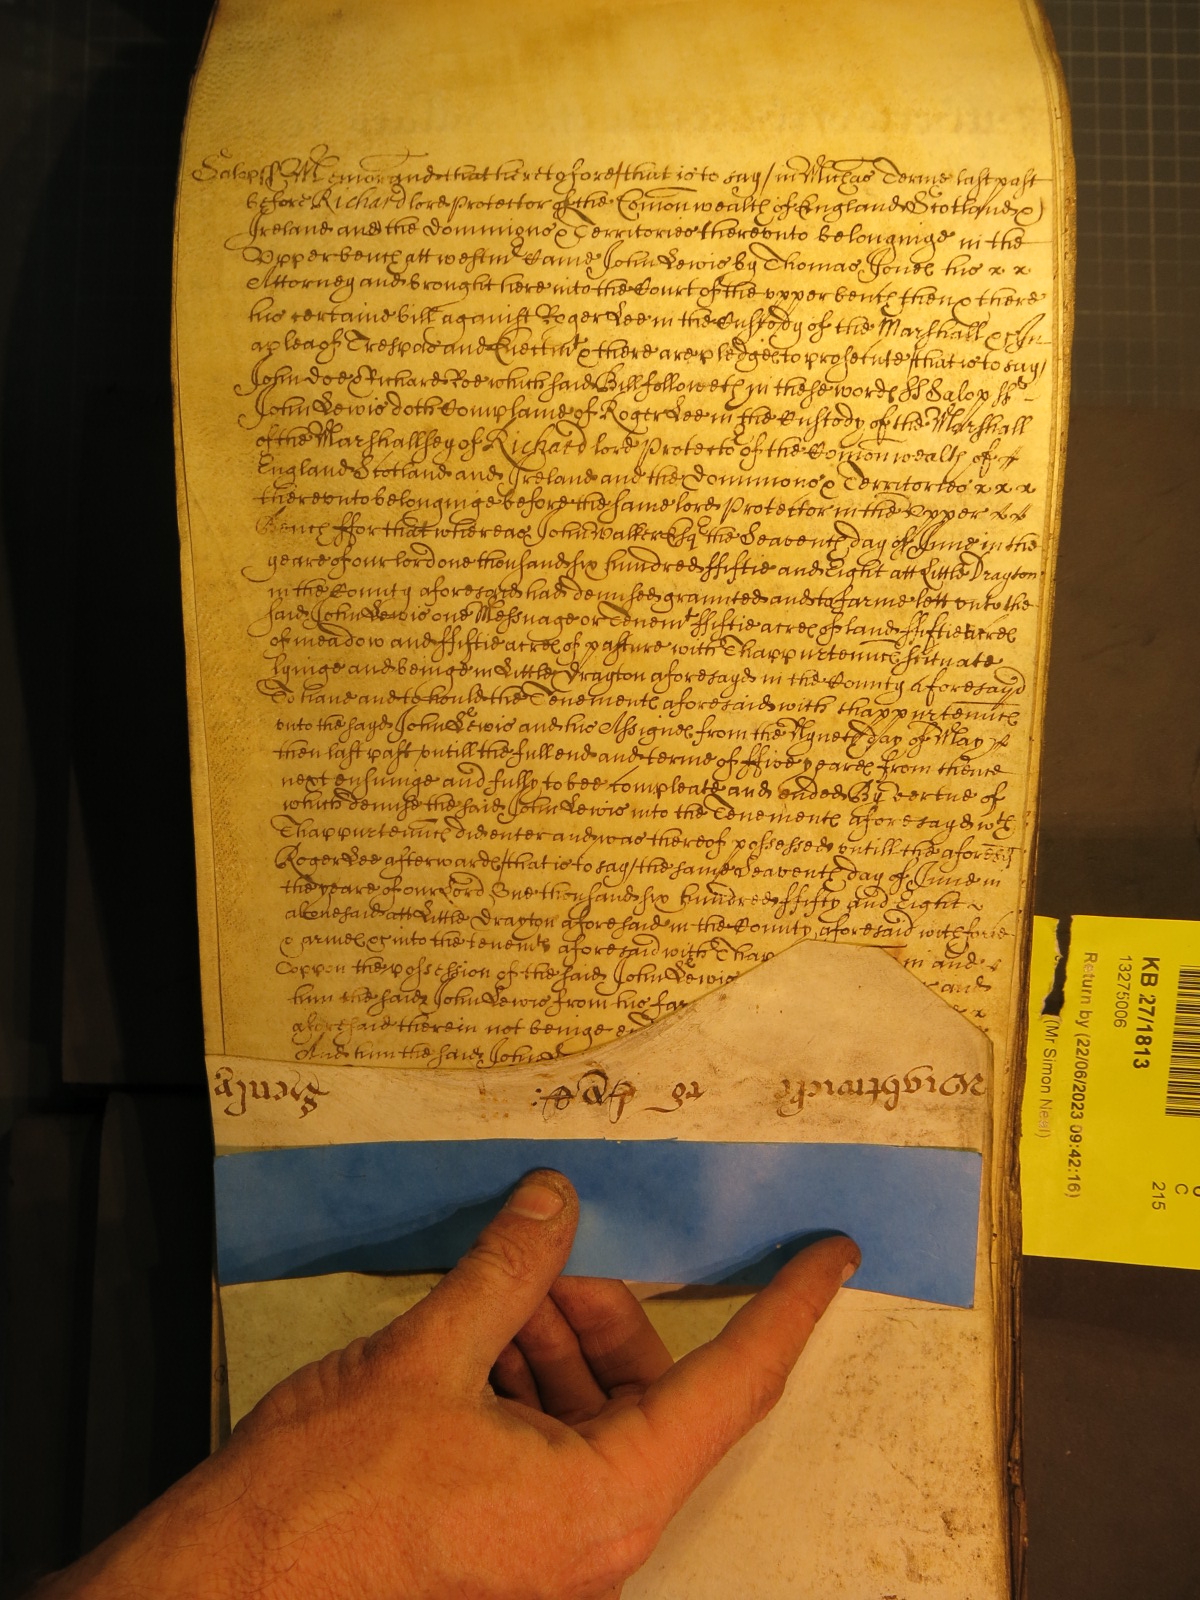 Salop ss Memorand that heretofore / that is to say / in Michas Terme last past
before Richard lord Protector of the Comonwealth of England Scotland &
Ireland and the Dominions & Territories thereunto belonginge in the
Upper bench att Westmr Came John Lewis by Thomas Jones his x x
Attorney and brought here into the Court of the upper bench then & there
his certaine bill against Roger Lee in the Custody of the Marshall &c In
a plea of Trespas and Eiectmt & there are pledges to prosecute / that is to say /
John Doe & Richard Roe which said Bill followeth in these words ss Salop ss
John Lewis doth Complaine of Roger Lee in the Custody of the Marshall
of the Marshallsey of Richard lord Protector of the Comonwealth of
England Scotland and Ireland and the Dominions & Territories x x x
thereunto belonginge before the same lord Protector in the Upper x x
Bench ffor that whereas John Walker Esq the Seaventh day of June in the
yeare of our lord one thousand six hundred ffiftie and Eight att Little Drayton
in the County aforesayd had demised graunted and to farme lett unto the
said John Lewis one Messuage or Tenemt ffiftie acres of land ffiftie acres
of meadow and ffiftie acres of pasture with Thappurtennces scituate
lyinge and beinge in Little Drayton aforesayd in the County aforesayd
To haue and to hould the Tenements aforesaid with thappurtennces
unto the sayd John Lewis and his Assignes from the day of May
then last past untill the full end and terme of ffive yeares from thence
next ensuinge and fully to bee compleate and ended By vertue of
which demise the said John Lewis into the Tenements aforesayd wth
Thappurtennces did enter and was thereof possessed untill the aforesd
Roger Lee afterwards / that is to say / the same Seaventh day of June in
the yeare of our Lord One thousand six hundred ffifty and Eight
abovesaid att Little Drayton aforesaid in the County aforesaid with force
& armes &c into the tenemts aforesaid with Thap in and
uppon the possession of the said John Lewis and
him the said John Lewis from his far
aforesaid therein not beinge e
And him the said John
Wightwicke to
Henly
KB 27/1813
13275006
Return by (22/06/2023 09:42:16)
(Mr Simon Neal)
C
215